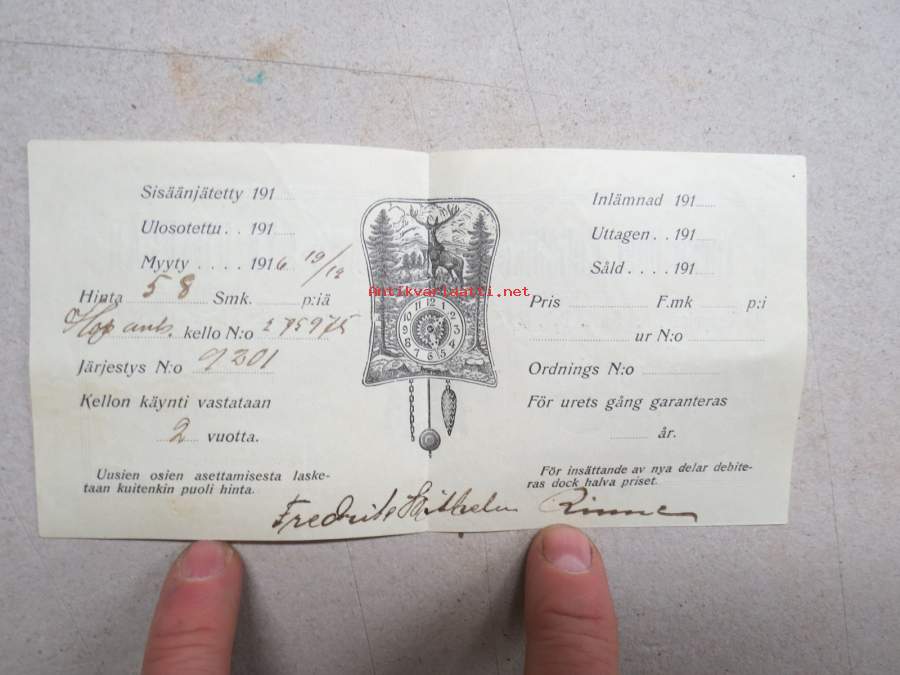 Sisäänjätetty 191......
Ulosotettu. . 191......
Myyty . . . . 1916 19/12
Hinta 58 Smk. ...... p:iä
Hop ank. kello N:o 275975
Järjestys N:o 9201
Kellon käynti vastataan
2 vuotta.
Uusien osien asettamisesta laske-
taan kuitenkin puoli hinta.
Antikvariaatti.net
12
11 1
10 2
9 3
8 4
7 6 5
Inlämnad 191......
Uttagen. . 191......
Såld . . . . 191......
Pris ...... F.mk ...... p:i
...... ur N:o ......
Ordnings N:o ......
För urets gång garanteras
...... år.
För insättande av nya delar debite-
ras dock halva priset.
Fredrik Wilhelm Rinne